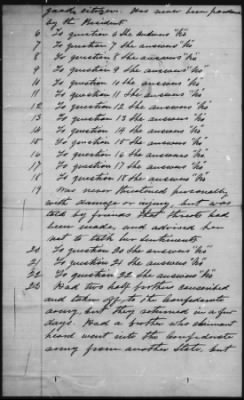 good citizen. Was never been pardoned
by the President
6 To question 6 she answers "No"
7 To question 7 she answers "No"
8 To question 8 she answers "No"
9 To question 9 she answers "No"
10 To question 10 she answers "No"
11 To question 11 she answers "No"
12 To question 12 she answers "No"
13 To question 13 she answers "No"
14 To question 14 she answers "No"
15 To question 15 she answers "No"
16 To question 16 she answers "No"
17 To question 17 she answers "No"
18 To question 18 she answers "No"
19 Was never threatened personally
with damage or injury, but was
told by friends that threats had
been made, and advised her
not to talk her sentiments.
20 To question 20 she answers "No"
21 To question 21 she answers "No"
22 To question 22 she answers "No"
23 Had two half brothers conscribed
and taken off to the Confederate
army, but they returned in a few
days. Had a brother who claimant
heard went into the Confederate
army from another State, but